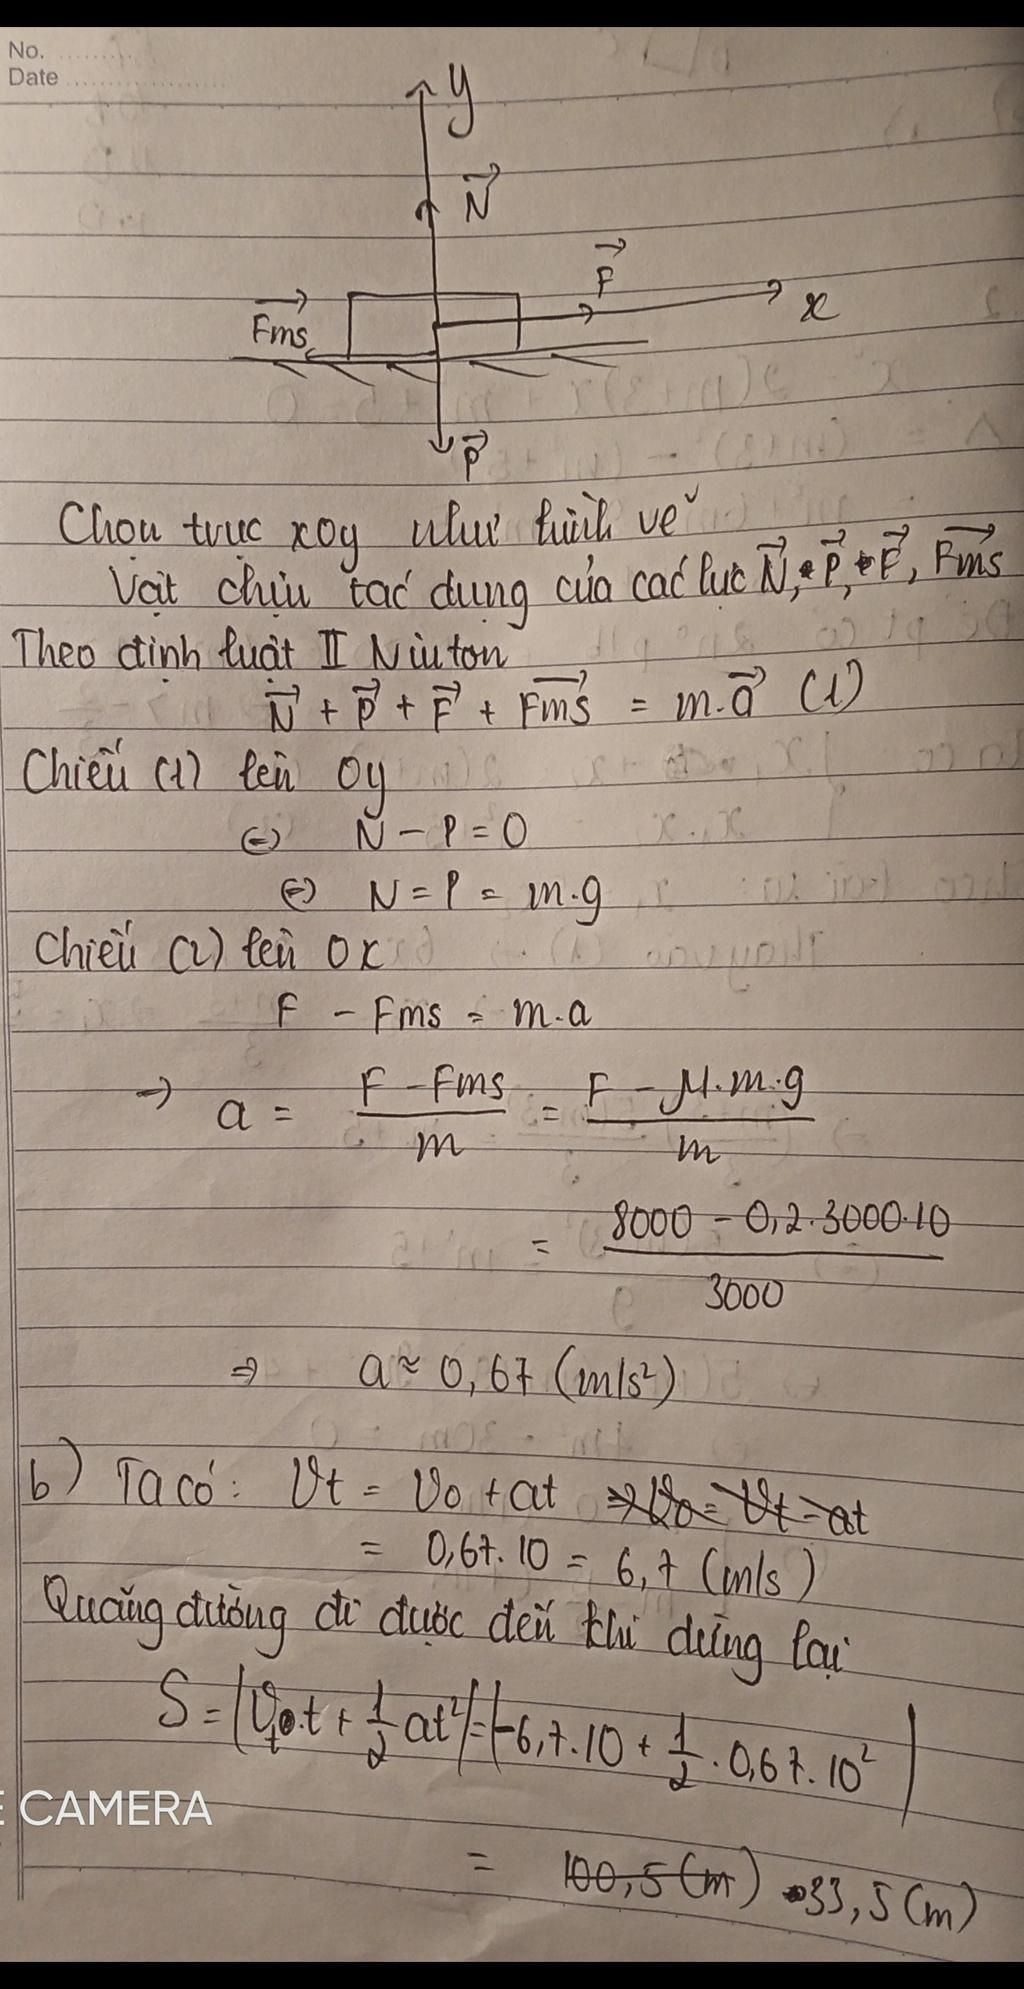 No.
Date
y
N
F
x
Fms
P
Chọn trục xoy như hình vẽ
Vật chịu tác dụng của các lực N, P, F, Fms
Theo định luật II Niuton
N + P + F + Fms = m.a (1)
Chiếu (1) lên oy
⇔ N - P = 0
⇔ N = P = m.g
Chiếu (1) lên ox
F - Fms = m.a
→ a = (F - Fms)/m = (F - μ.m.g)/m
= (8000 - 0,2.3000.10)/3000
⇒ a ≈ 0,67 (m/s²)
b) Ta có: Vt = Vo + at ⇒ Vo = Vt - at
= 0,67.10 = 6,7 (m/s)
Quãng đường đi được đến khi dừng lại
S = |Vt.t + 1/2 at²| = |-6,7.10 + 1/2 . 0,67.10²|
= 100,5 (m) 33,5 (m)
CAMERA